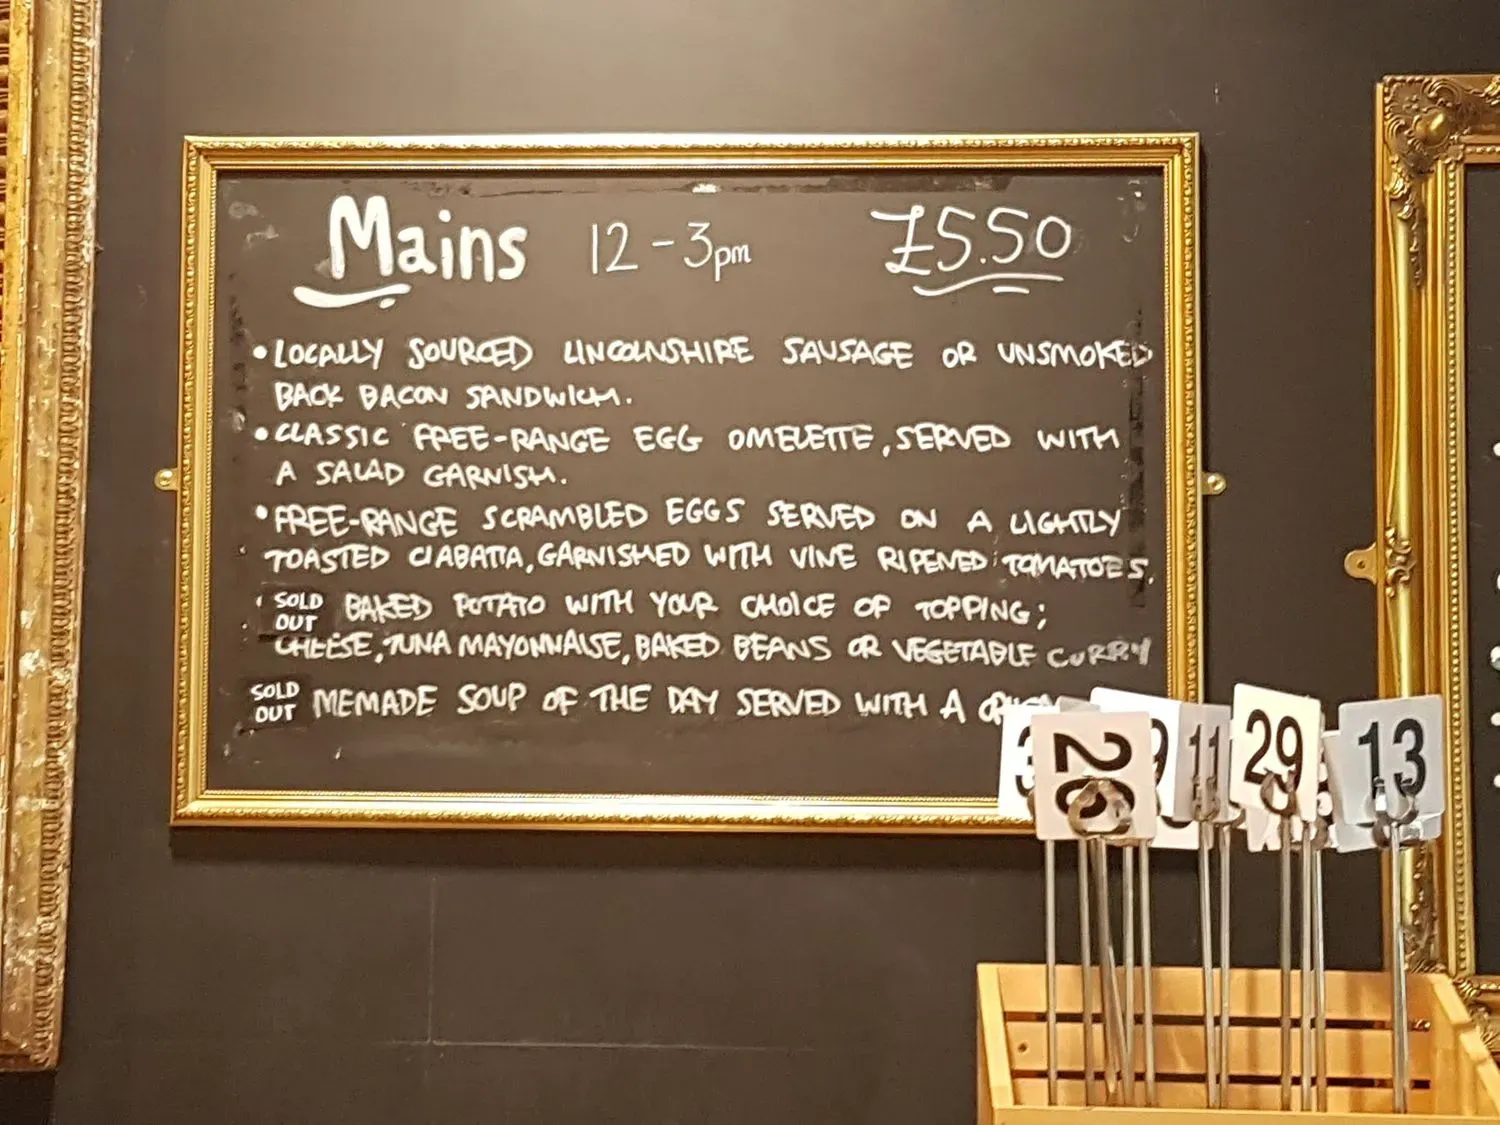 Mains 12 - 3pm £5.50
• LOCALLY SOURCED LINCOLNSHIRE SAUSAGE OR UNSMOKED
BACK BACON SANDWICH.
• CLASSIC FREE-RANGE EGG OMELETTE, SERVED WITH
A SALAD GARNISH.
• FREE-RANGE SCRAMBLED EGGS SERVED ON A LIGHTLY
TOASTED CIABATTA, GARNISHED WITH VINE RIPENED TOMATOES.
SOLD
OUT
BAKED POTATO WITH YOUR CHOICE OF TOPPING;
CHEESE, TUNA MAYONNAISE, BAKED BEANS OR VEGETABLE CURRY
SOLD
OUT
MEMADE SOUP OF THE DAY SERVED WITH A
26
11
29
13